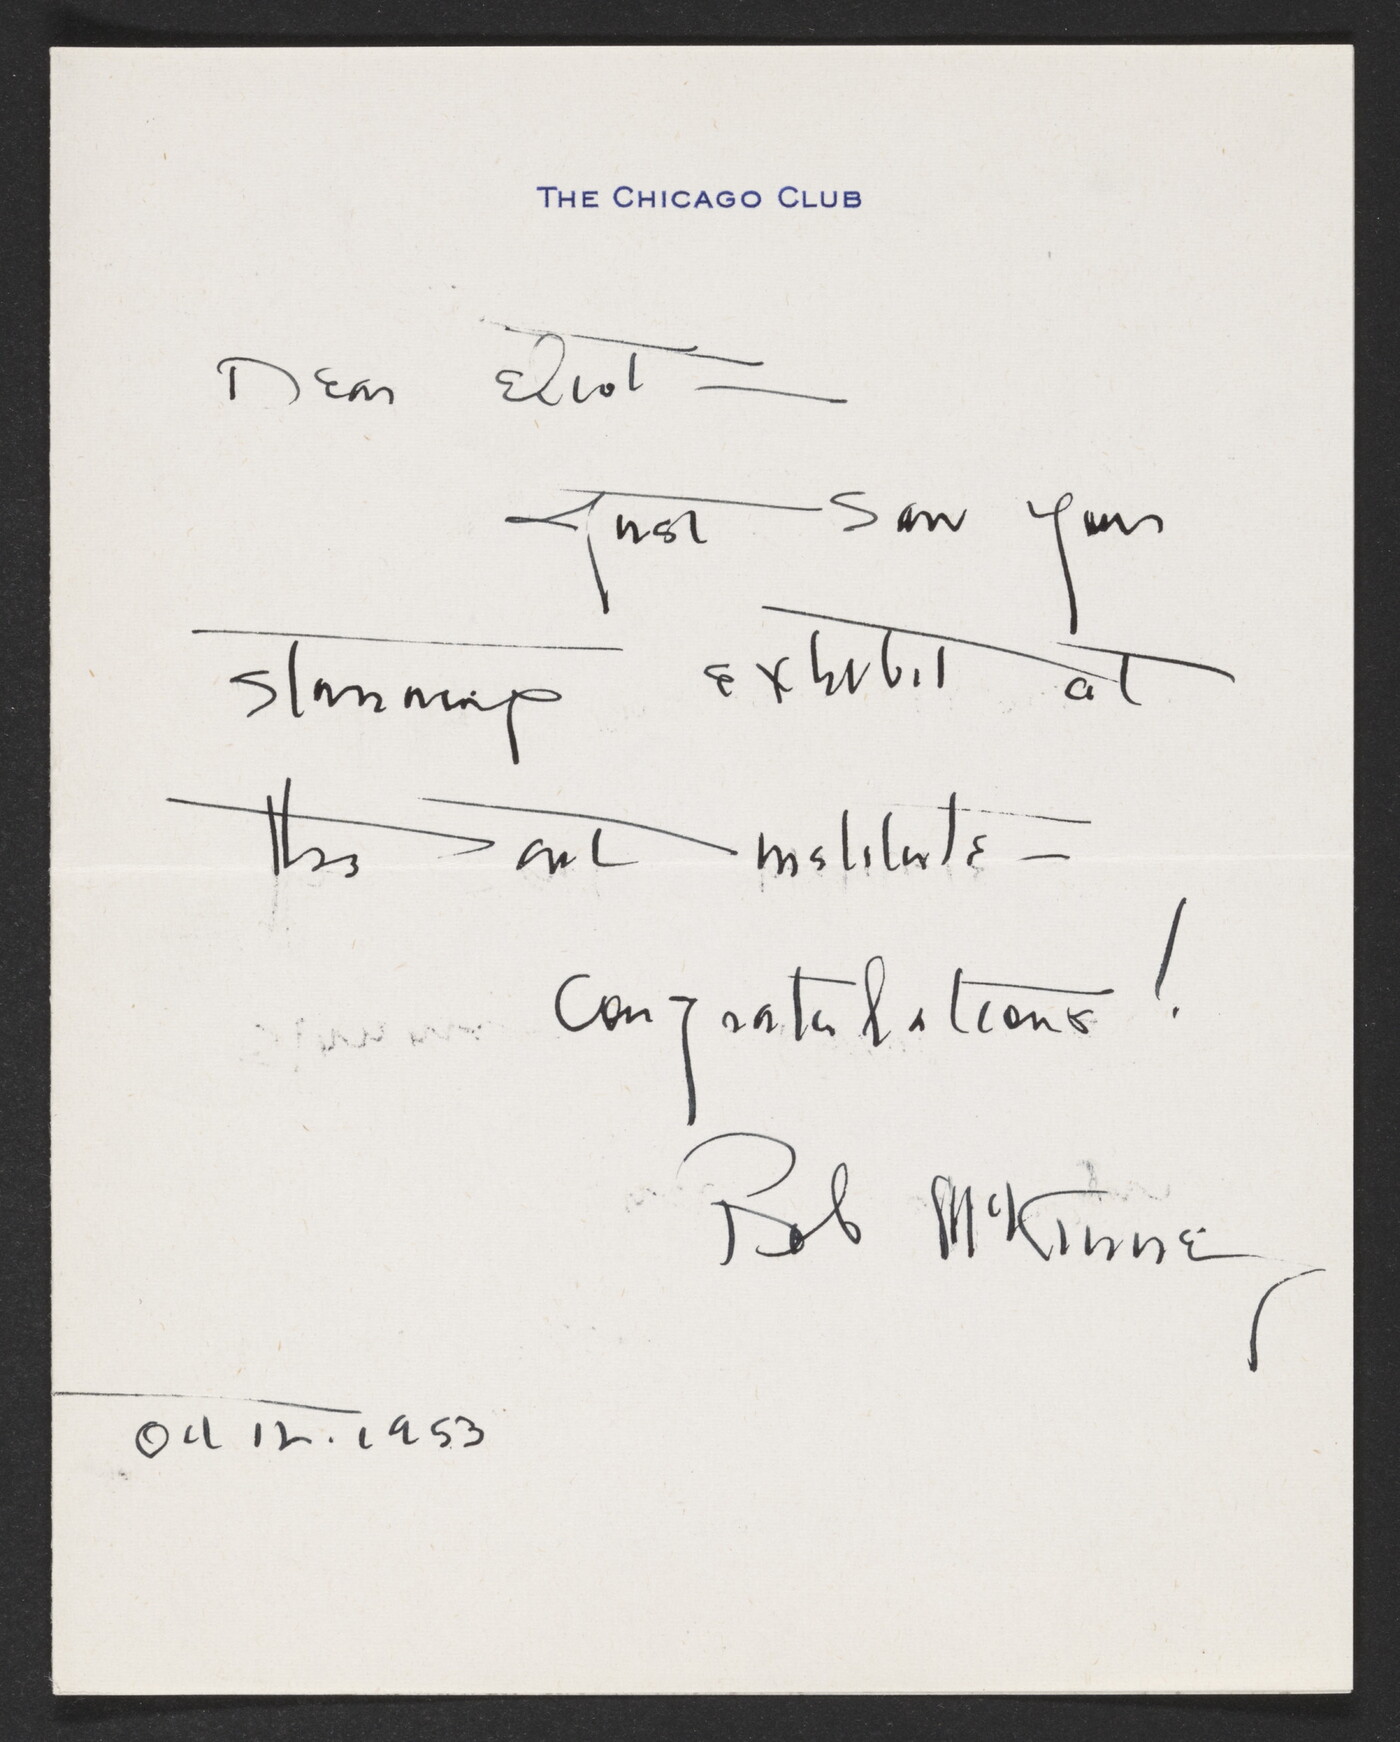 THE CHICAGO CLUB
Dear Eliot =
Just saw your
stunning exhibit at
the art institute —
Congratulations!
Bob McKinney
Oct 12. 1953